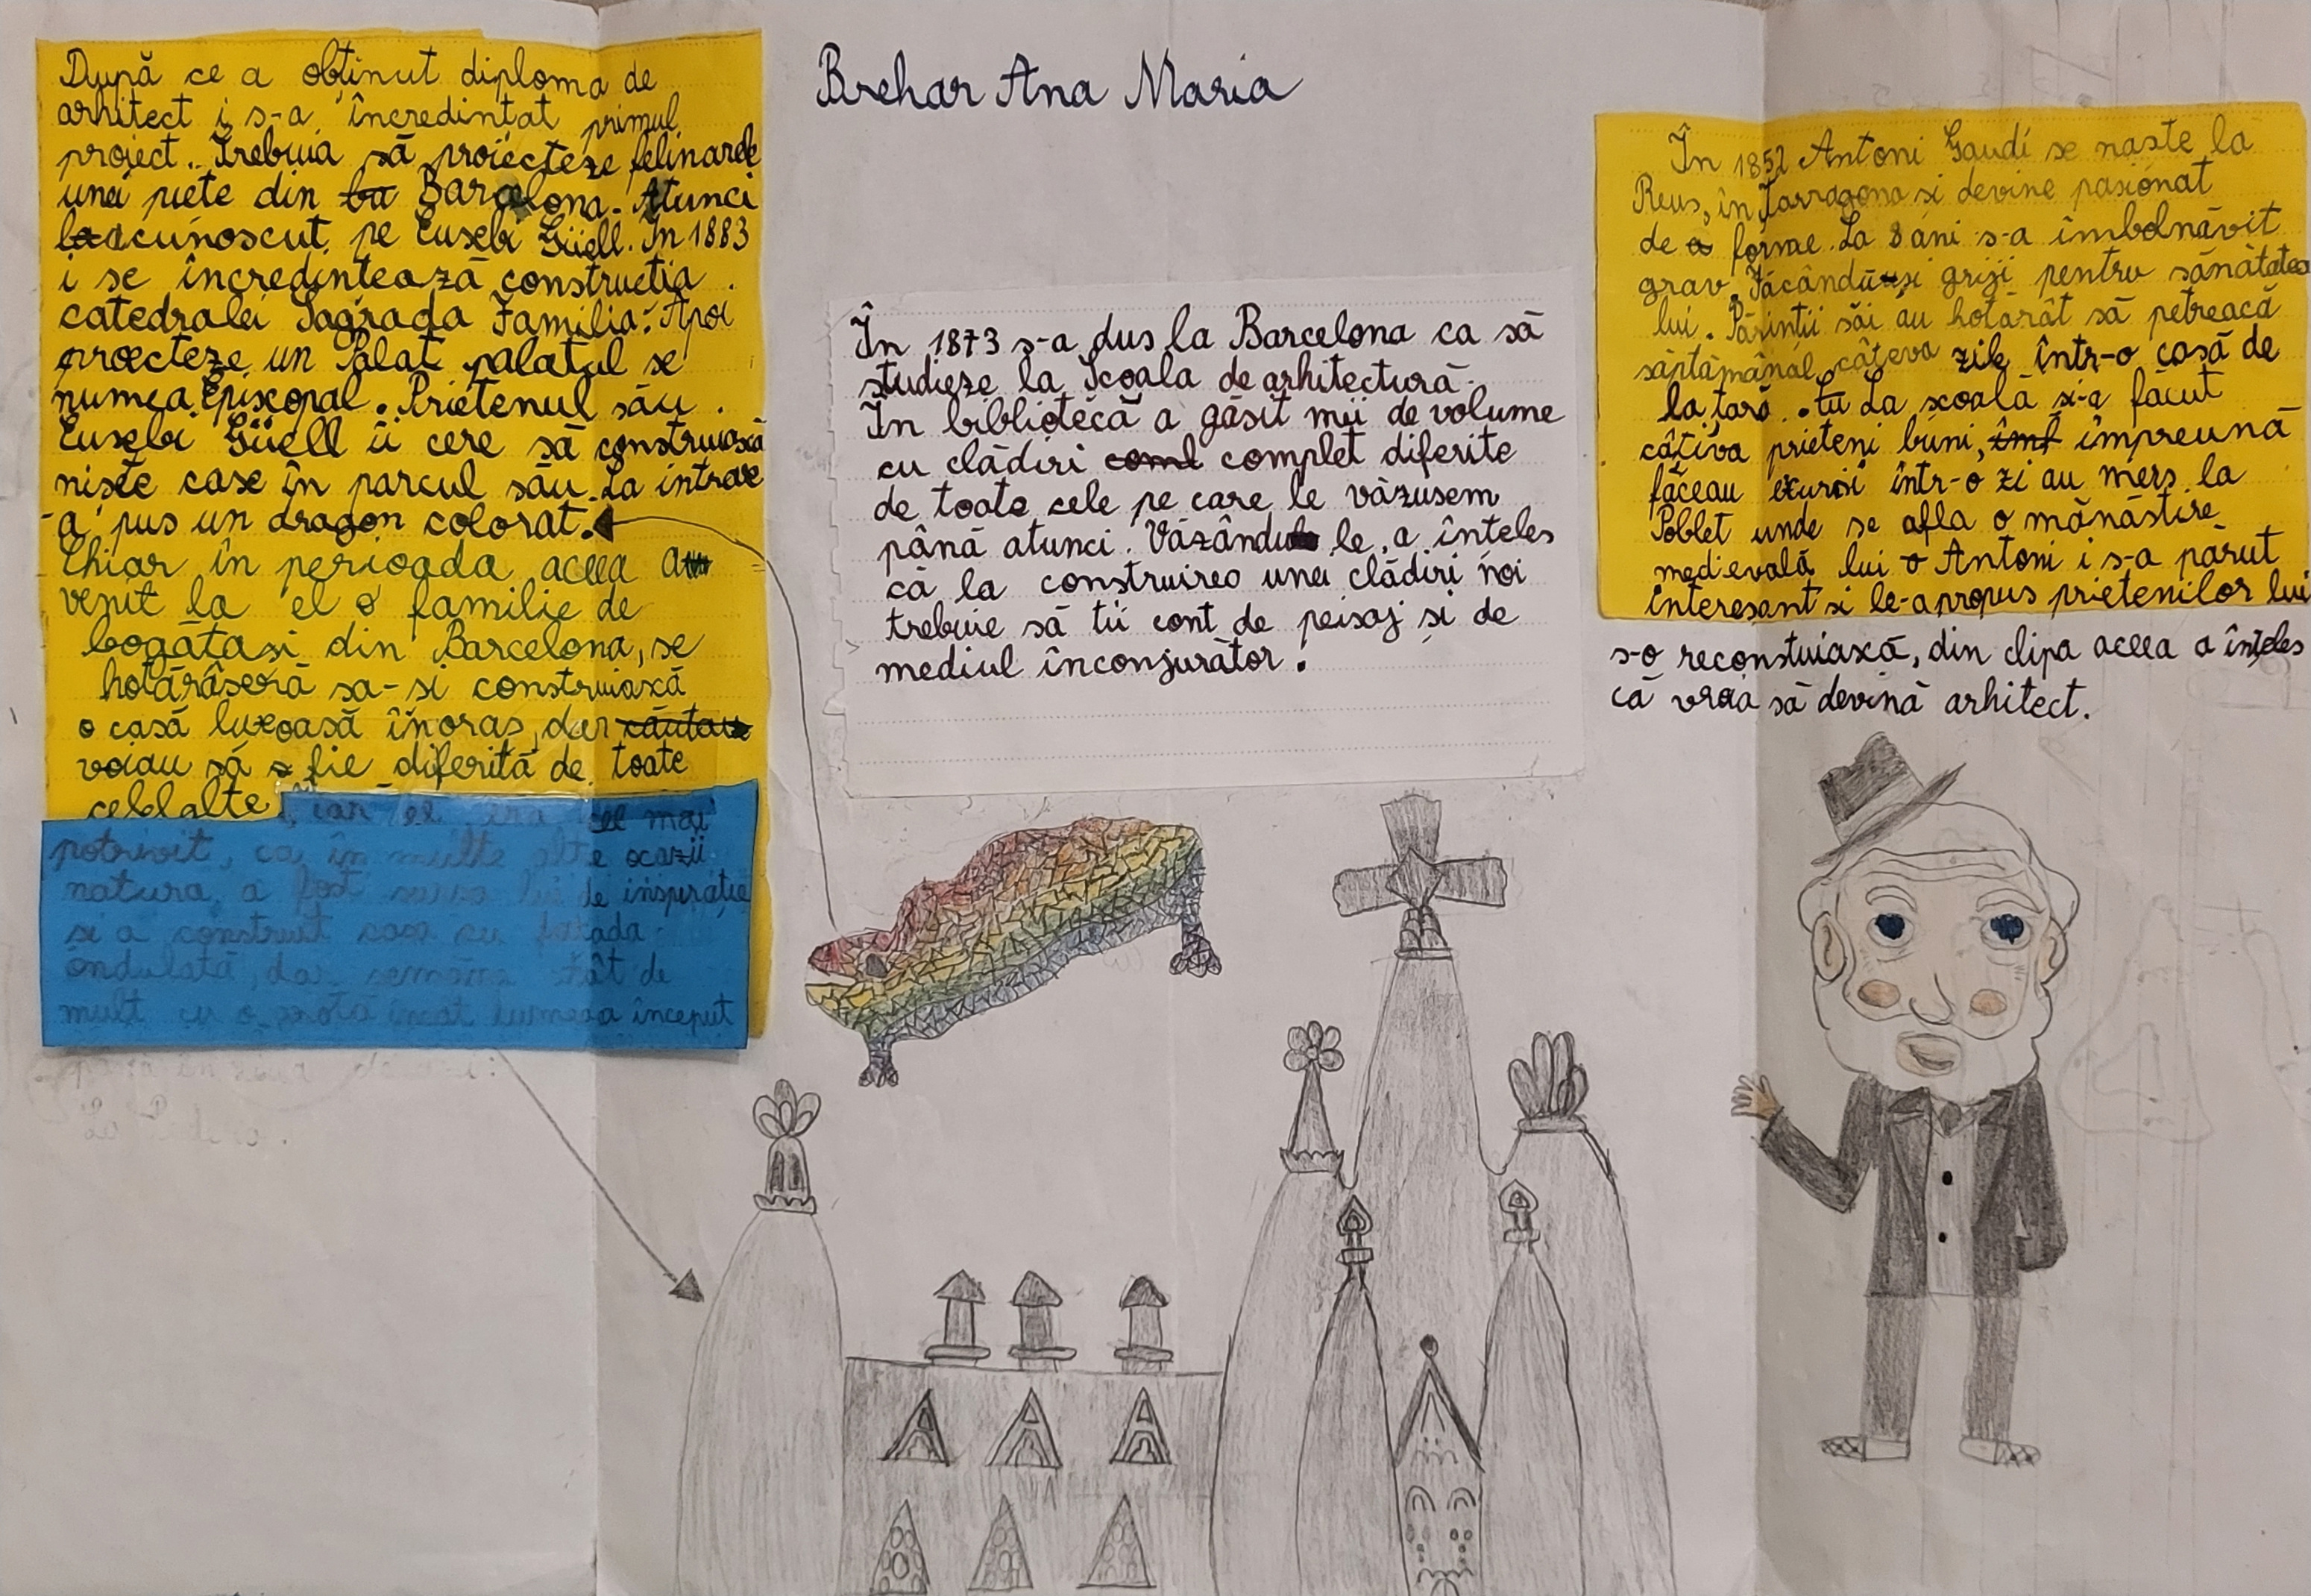 Brehar Ana Maria
După ce a obținut diploma de
arhitect i s-a încredintat primul
proiect. Trebuia să proiecteze felinarele
unei piete din Barcelona. Atunci
a cunoscut pe Eusebi Güell. În 1883
i se încredintează constructia
catedralei Sagrada Familia. Apoi
proecteze un Palat palatul se
numea Episcopal. Prietenul său
Eusebi Güell îi cere să construiască
niste case în parcul său. La intrare
a pus un dragon colorat.
Chiar în perioada aceea a
venit la el o familie de
bogătasi din Barcelona, se
hotărâseră sa-si construiască
o casă luxoasă în oras, dar
voiau să fie diferită de toate
celelalte, iar el era cel mai
potrivit, ca în multe alte ocazii
natura a fost sursa lui de inspirație
si a construit casa cu fatada
ondulată, dar semăna atât de
mult cu o încât lumea a început
În 1873 s-a dus la Barcelona ca să
studieze la Scoala de arhitectură.
În bibliotecă a găsit mii de volume
cu clădiri coml complet diferite
de toate cele pe care le văzusem
până atunci. Văzându le, a înteles
că la construirea unei clădiri noi
trebuie să tii cont de peisaj și de
mediul înconjurător.
În 1852 Antoni Gaudí se naste la
Reus, în Tarragona si devine pasionat
de forme. La 8 ani s-a îmbolnăvit
grav. Făcându-si griji pentru sănătatea
lui. Părintii săi au hotărât să petreacă
săptămânal câteva zile într-o casă de
la tară. La scoală si-a făcut
câtiva prieteni buni, îml împreună
făceau excursi într-o zi au mers la
Poblet unde se afla o mănăstire
medievală lui Antoni i s-a parut
interesant si le-a propus prietenilor lui
s-o reconstuiască, din clipa aceea a înteles
că vroia să devină arhitect.